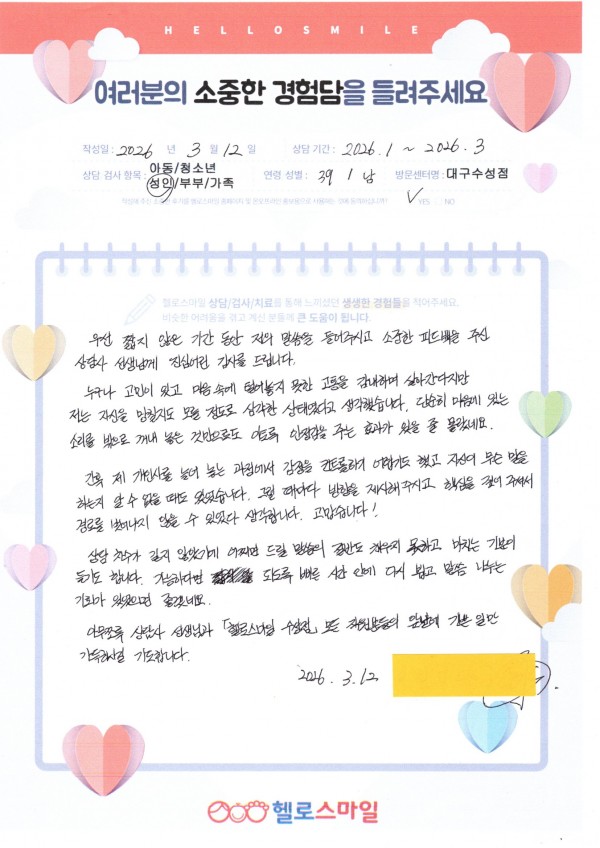 HELLOSMILE
여러분의 소중한 경험담을 들려주세요
작성일 : 2026 년 3 월 12 일 상담 기간 : 2026. 1 ~ 2026. 3
상담 검사 항목 : 아동/청소년 성인/부부/가족 연령 성별 : 39 / 남 방문센터명 : 대구수성점
YES . NO
헬로스마일 상담/검사/치료를 통해 느끼셨던 생생한 경험들을 적어주세요.
비슷한 어려움을 겪고 계신 분들께 큰 도움이 됩니다.
우선 짧지 않은 기간 동안 저의 말씀을 들어주시고 소중한 피드백을 주신
상담사 선생님께 진심어린 감사를 드립니다.
누구나 고민이 있고 마음 속에 털어놓지 못한 고통을 감내하며 살아간다지만
저는 자신을 망칠지도 모를 정도로 심각한 상태였다고 생각했습니다. 단순히 마음에 있는
소리를 밖으로 꺼내 놓은 것만으로도 이토록 안정감을 주는 효과가 있을 줄 몰랐네요.
간혹 제 개인사를 늘어 놓는 과정에서 감정을 컨트롤하기 어렵기도 했고 자신이 무슨 말을
하는지 알 수 없을 때도 있었습니다. 그럴 때마다 방향을 제시해주시고 핵심을 짚어 주셔서
경로를 벗어나지 않을 수 있었다 생각합니다. 고맙습니다!
상담 횟수가 길지 않았기에 어쩌면 드릴 말씀의 절반도 채우지 못하고 마치는 기분이
들기도 합니다. 가능하다면 되도록 빠른 시간 안에 다시 뵙고 말씀 나누는
기회가 있었으면 좋겠네요.
아무쪼록 상담사 선생님과 「헬로스마일 수성점」 모든 직원분들의 앞날에 기쁜 일만
가득하시길 기도합니다.
2026. 3. 12
헬로스마일